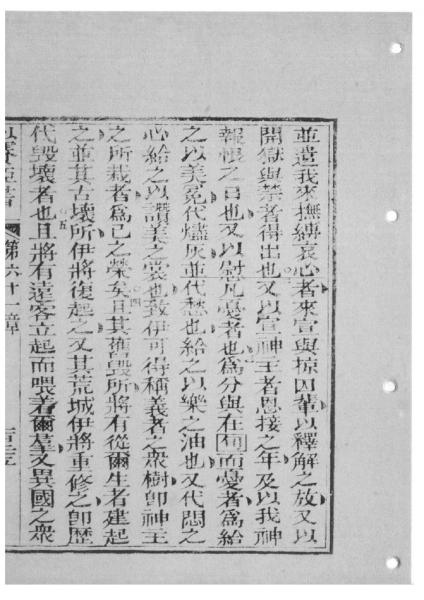 並遣我來撫縛哀心者來宣與掠囚輩以釋解之放又以
開獄與禁者得出也又以宣神主者恩接之年及以我神
報恨之日也又以慰凡憂者也為分與在旬而憂者為給
之以美冕代燼灰並代愁也給之以樂之油也又代悶之
心給之以讚美之裳也致伊可得稱義者之眾樹即神主
之所栽者為己之榮矣且其舊毀所將有從爾生者建起
之並其古壞所伊將復起之又其荒城伊將重修之即歷
代毀壞者也且將有遠客立起而喂著爾羣又異國之眾
第六十一章